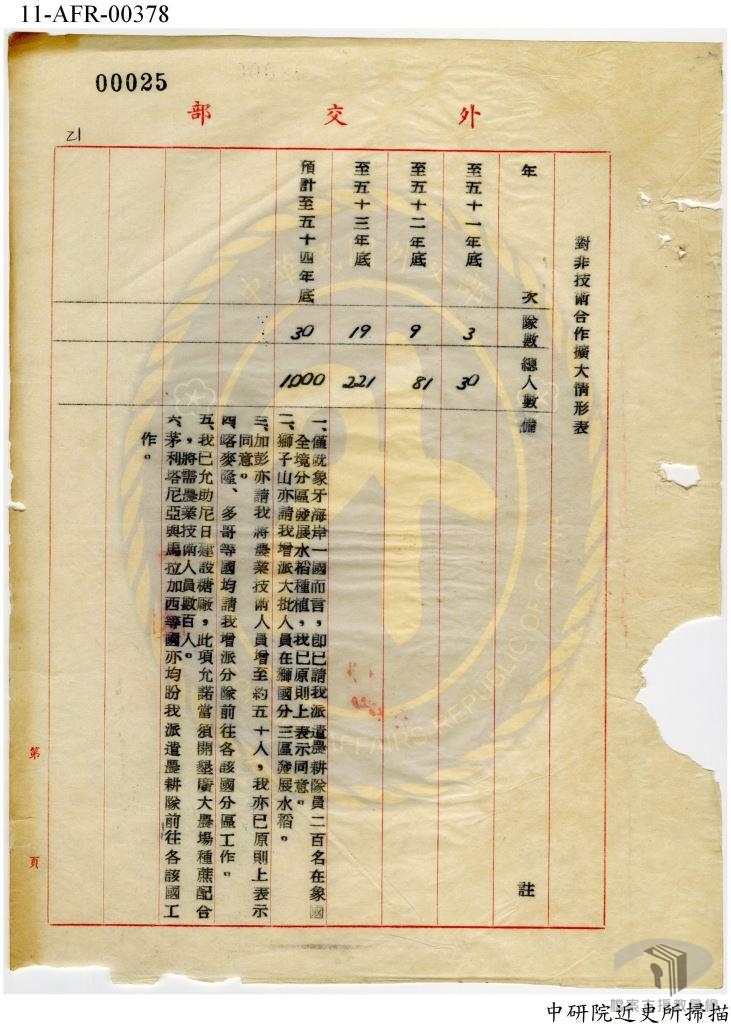 11-AFR-00378
00025
外交部
21
對非技術合作擴大情形表
年次 隊數 總人數 備註
至五十一年底 3 30
至五十二年底 9 81
至五十三年底 19 221
預計至五十四年底 30 1000
一、僅就象牙海岸一國而言，即已請我派遣農耕隊員二百名在象國
全境分區發展水稻種植，我已原則上表示同意。
二、獅子山亦請我增派大批人員在獅國分三區發展水稻。
三、加彭亦請我將農業技術人員增至約五十人，我亦已原則上表示
同意。
四、喀麥隆、多哥等國均請我增派分隊前往各該國分區工作。
五、我已允助尼日建設糖廠，此項允諾當須開墾廣大農場種蔗配合
，將需農業技術人員數百人。
六、茅利塔尼亞與馬拉加西等國亦均盼我派遣農耕隊前往各該國工
作。
第 頁
中華民國外交部
AFFAIRS REPUBLIC OF CHINA
檔案支援教學網
中研院近史所掃描